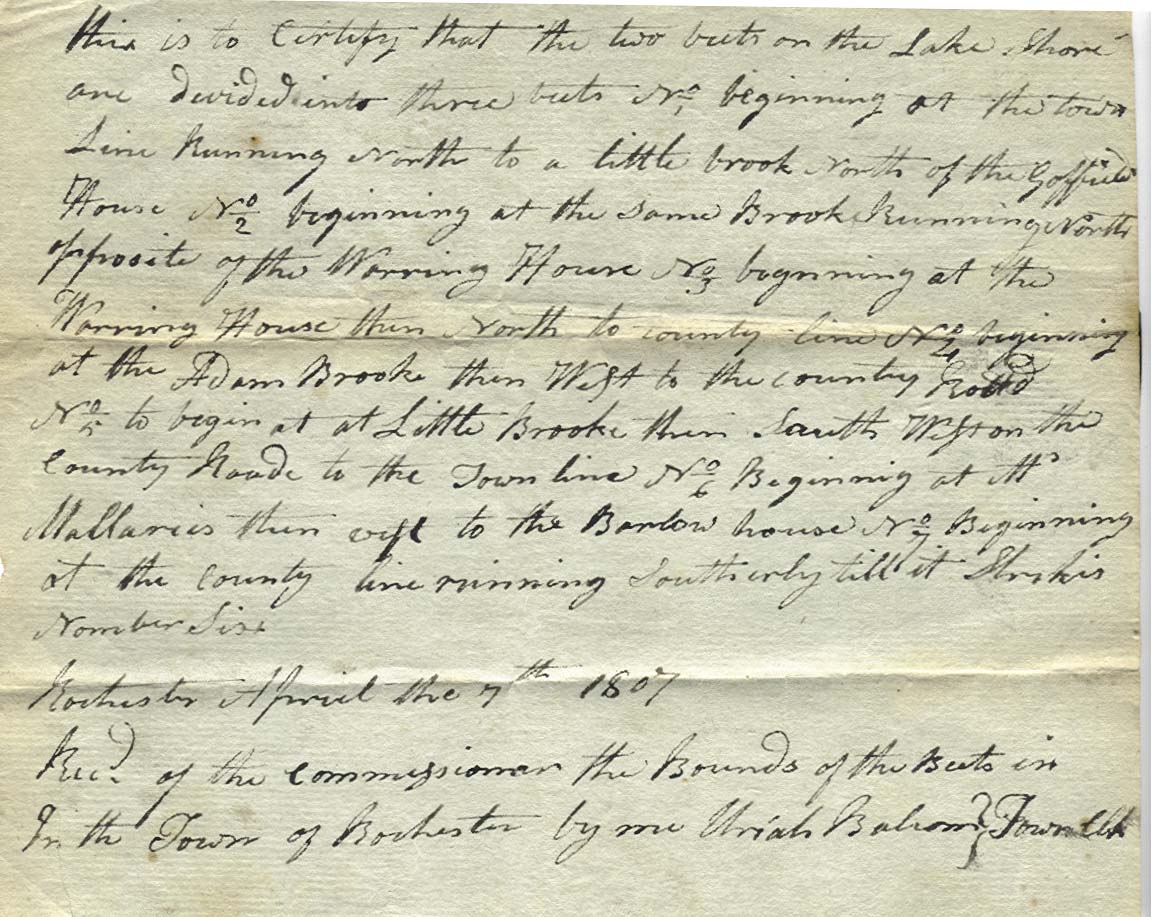 this is to Certify that the two beets on the Lake Shore
are devided into three beets No 1 beginning at the town
Line Running North to a little brook North of the
House No 2 beginning at the Same Brooke Running North
opposite of the Warring House No 3 begnning at the
Warring House then North to county line No 4 beginning
at the Adam Brooke then West to the county Road
No 5 to begin at at Little Brooke then South West on the
County Roade to the Town line No 6 Beginnig at Mr
Mallaries then west to the Barlow house No 7 Beginning
at the County line running Southerly till it Strikis
Nomber Six
Rochester Apriel the 7th 1807
Recd of the Commissioner the Bounds of the Beets in
In the Town of Rochester by me Uriah Balcom Town Clk